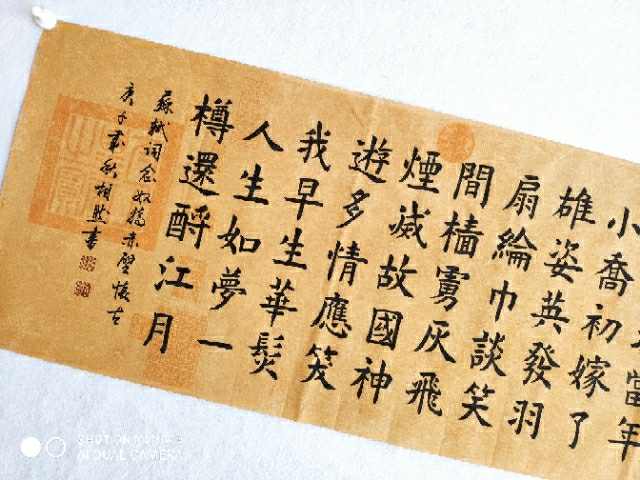 當年
小喬初嫁了
雄姿英發羽
扇綸巾談笑
間檣虜灰飛
煙滅故國神
遊多情應笑
我早生華髮
人生如夢一
樽還酹江月
蘇軾詞念奴嬌赤壁懷古
庚子歲秋相書
SHOT ON MI MIX 3
AI DUAL CAMERA